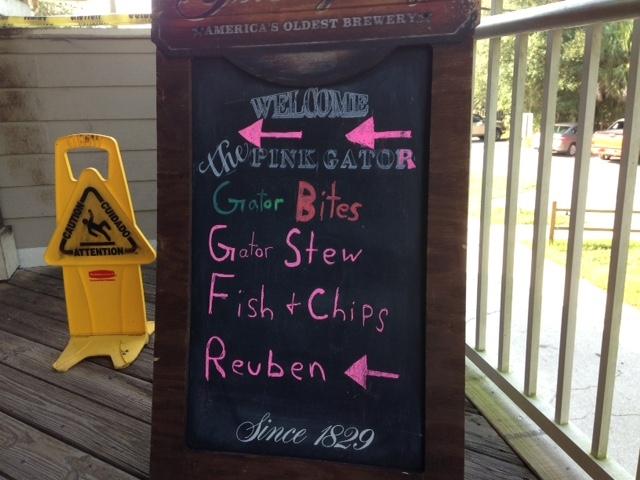 AMERICA'S OLDEST BREWERY
WELCOME
the PINK GATOR
Gator Bites
Gator Stew
Fish + Chips
Reuben
Since 1829
CAUTION
CUIDADO
ATTENTION
Rubbermaid